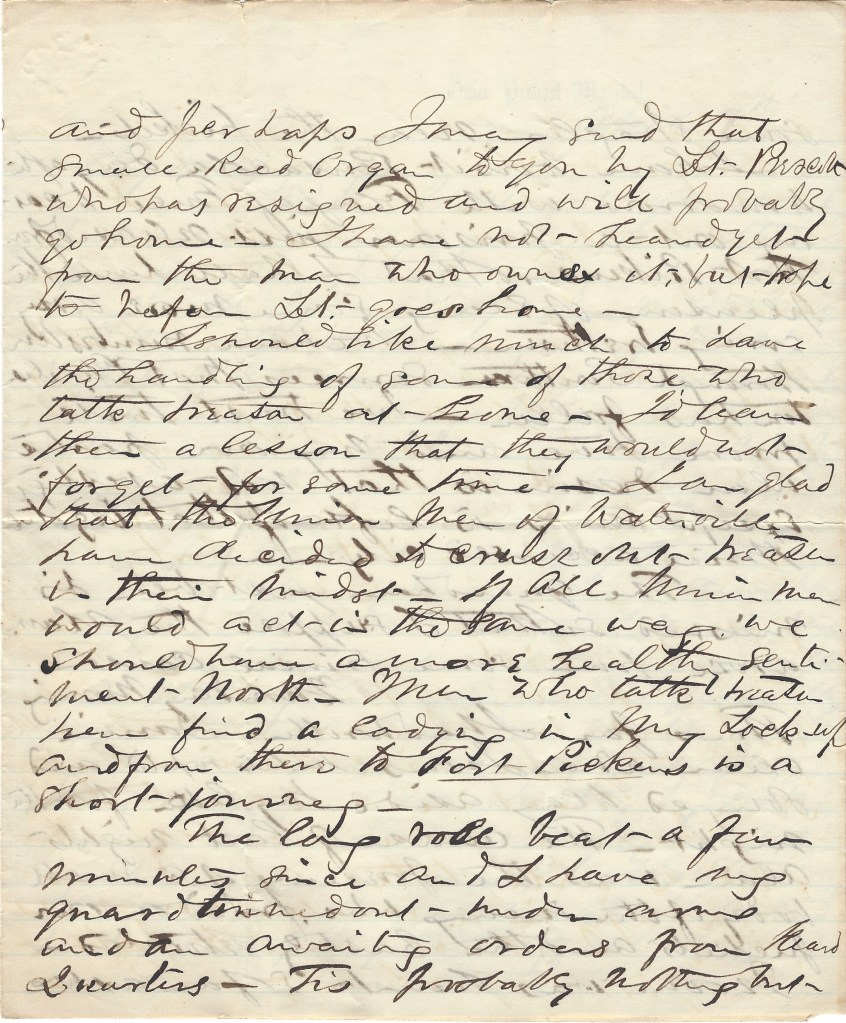 and perhaps I may send that
small Reed Organ to you by Lt. Prescott
who has resigned and will probably
go home – I have not – heard yet –
from the man who owns it, but – hope
to before Lt. – goes home –
I should like much to have
the handling of some of those who
talk treason at – home – I'd learn
them a lesson that they would not –
forget – for some time – I am glad
that the Union Men of Waterville
have decided to crush out – treason
in their midst – If All Union men
would act – in the same way we
should have a more healthy senti-
ment – North – Men who talk treason
here find a lodging in my Lock-up
and from there to Fort Pickens is a
short – journey –
The long roll beat – a few
minutes since and I have my
guard turned out – under arms
and am awaiting orders from Head
Quarters – Tis probably nothing but –